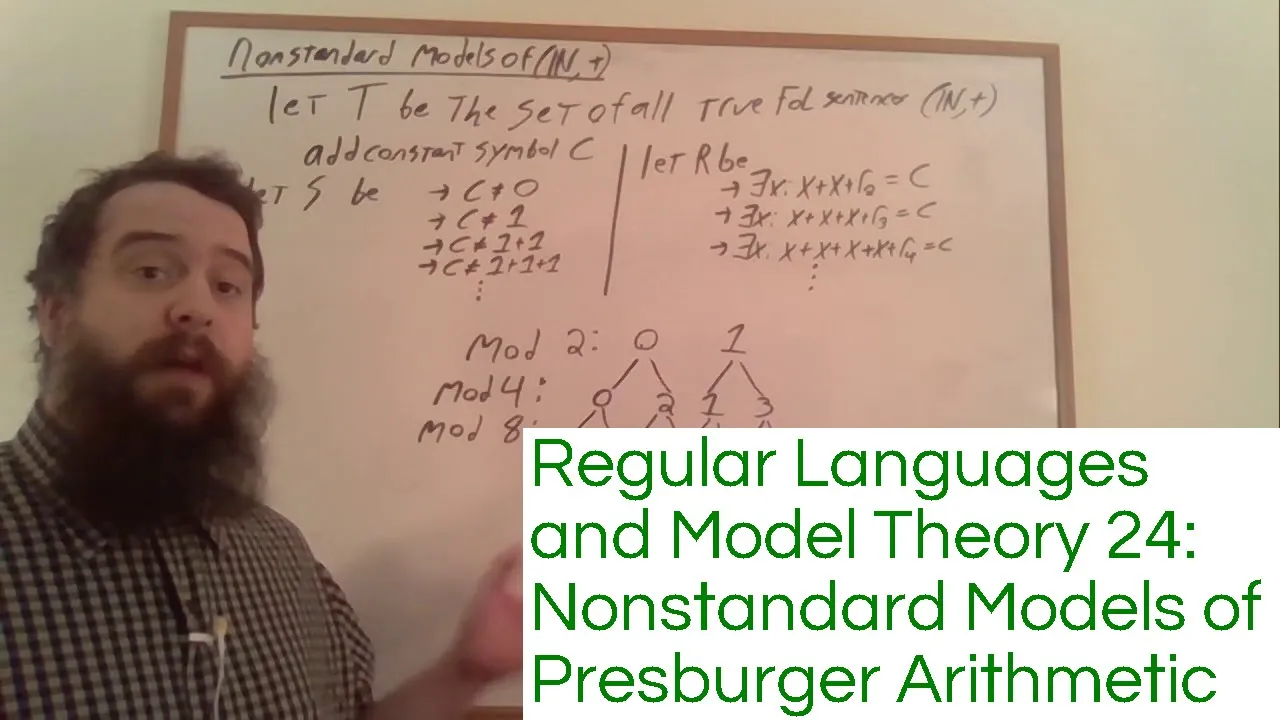 Nonstandard Models of (IN, +)
let T be the set of all true Fol sentences (IN, +)
add constant symbol C
let S be
→ C ≠ 0
→ C ≠ 1
→ C ≠ 1+1
→ C ≠ 1+1+1
⋮
let R be
→ ∃x: x+x+r₂ = C
→ ∃x: x+x+x+r₃ = C
→ ∃x: x+x+x+x+r₄ = C
⋮
Mod 2: 0 1
Mod 4: 0 2 1 3
Mod 8:
Regular Languages
and Model Theory 24:
Nonstandard Models of
Presburger Arithmetic